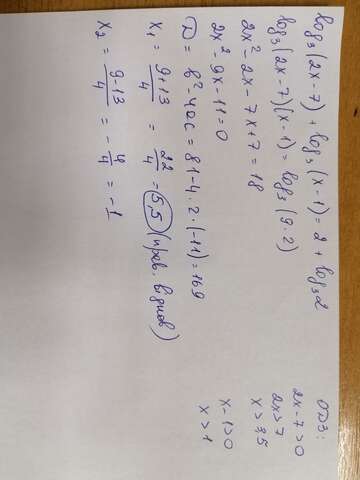 log₃(2x-7) + log₃(x-1) = 2 + log₃2
log₃(2x-7)(x-1) = log₃(9·2)
2x²-2x-7x+7=18
2x²-9x-11=0
D = b²-4ac = 81-4·2·(-11)=169
x₁ = (9+13)/4 = 22/4 = 5,5 (прав.
x₂ = (9-13)/4 = -4/4 = -1
ОДЗ:
2x-7>0
2x>7
x>3,5
x-1>0
x>1